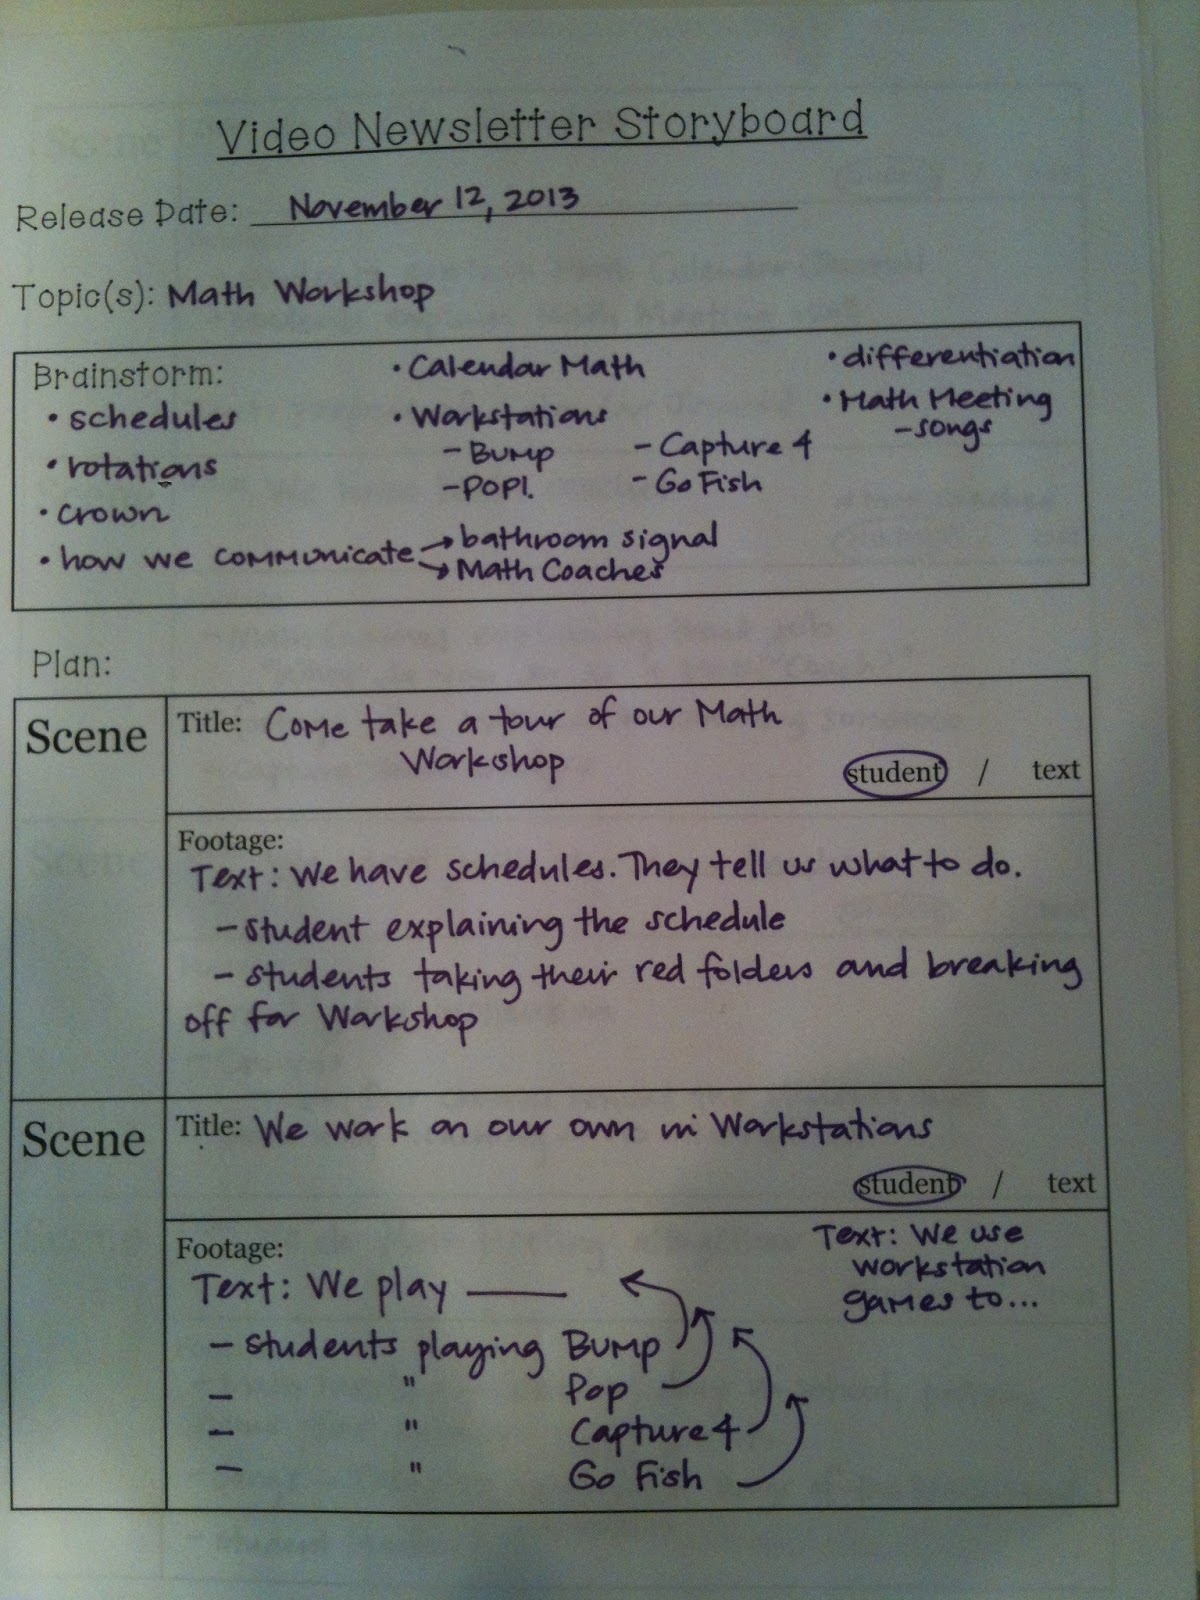 Video Newsletter Storyboard
Release Date: November 12, 2013
Topic(s): Math Workshop
Brainstorm:
• schedules
• rotations
• crown
• how we communicate → bathroom signal
→ Math Coaches
• Calendar Math
• Workstations
- Bump
- Pop!.
- Capture 4
- Go Fish
• differentiation
• Math Meeting
- songs
Plan:
Scene
Title: Come take a tour of our Math
Workshop
student / text
Footage:
Text: We have schedules. They tell us what to do.
- student explaining the schedule
- students taking their red folders and breaking
off for Workshop
Scene
Title: We work on our own in Workstations
student / text
Footage:
Text: We play ______
- students playing Bump
- " Pop
- " Capture 4
- " Go Fish
Text: We use
workstation
games to...